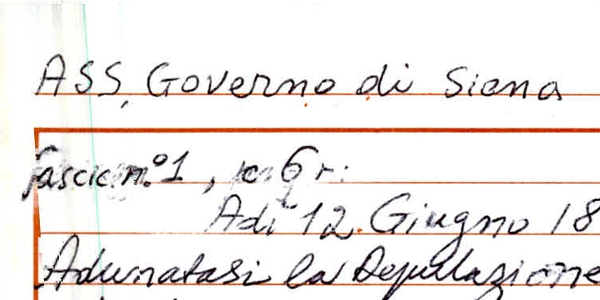 ASS, Governo di Siena
fascic. n.º 1, c. 6 r:
Adì 12 Giugno 18
Adunatasi la Deputazione